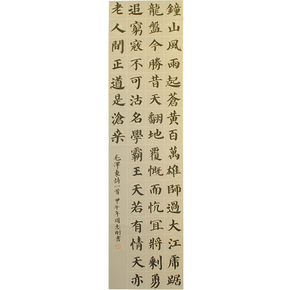 鐘山風雨起蒼黃百萬雄師過大江虎踞
龍盤今勝昔天翻地覆慨而忼宜將剩勇
追窮寇不可沽名學霸王天若有情天亦
老人間正道是滄桒
毛澤東詩一首 甲午年周志書